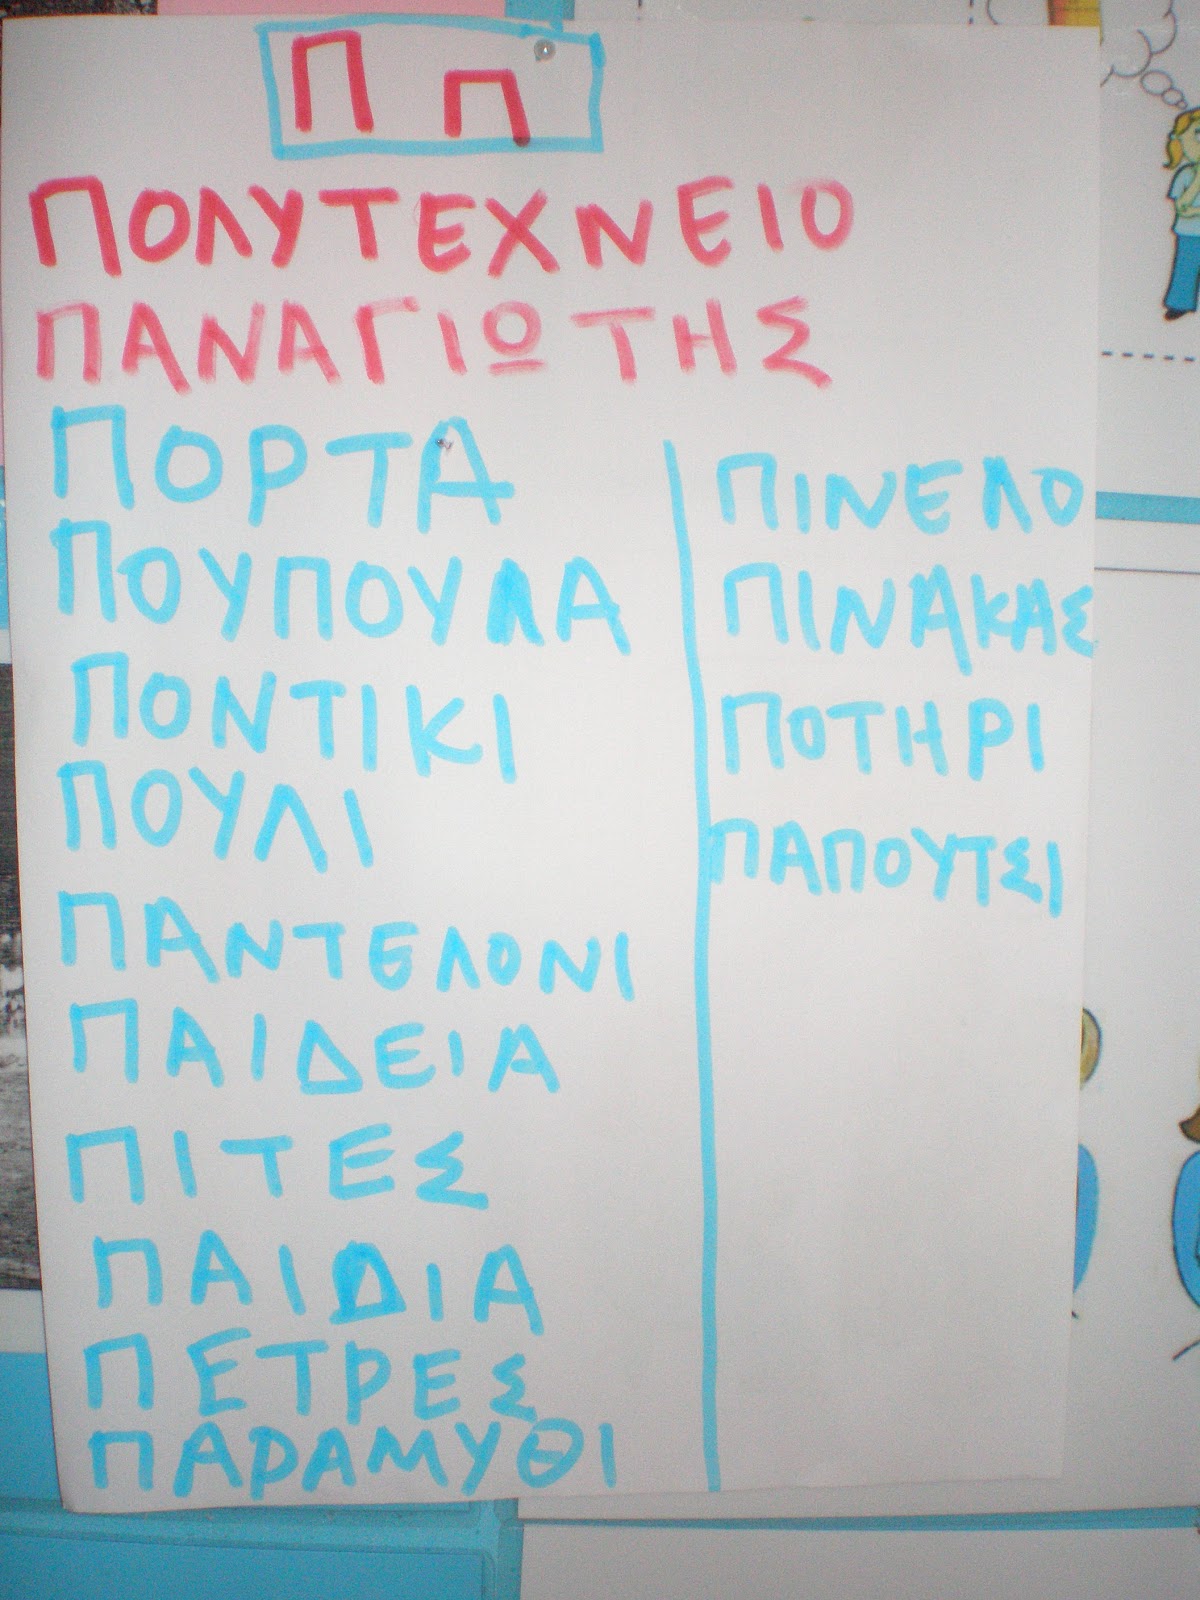 Π π
ΠΟΛΥΤΕΧΝΕΙΟ
ΠΑΝΑΓΙΩΤΗΣ
ΠΟΡΤΑ
ΠΟΥΠΟΥΛΑ
ΠΟΝΤΙΚΙ
ΠΟΥΛΙ
ΠΑΝΤΕΛΟΝΙ
ΠΑΙΔΕΙΑ
ΠΙΤΕΣ
ΠΑΙΔΙΑ
ΠΕΤΡΕΣ
ΠΑΡΑΜΥΘΙ
ΠΙΝΕΛΟ
ΠΙΝΑΚΑΣ
ΠΟΤΗΡΙ
ΠΑΠΟΥΤΣΙ